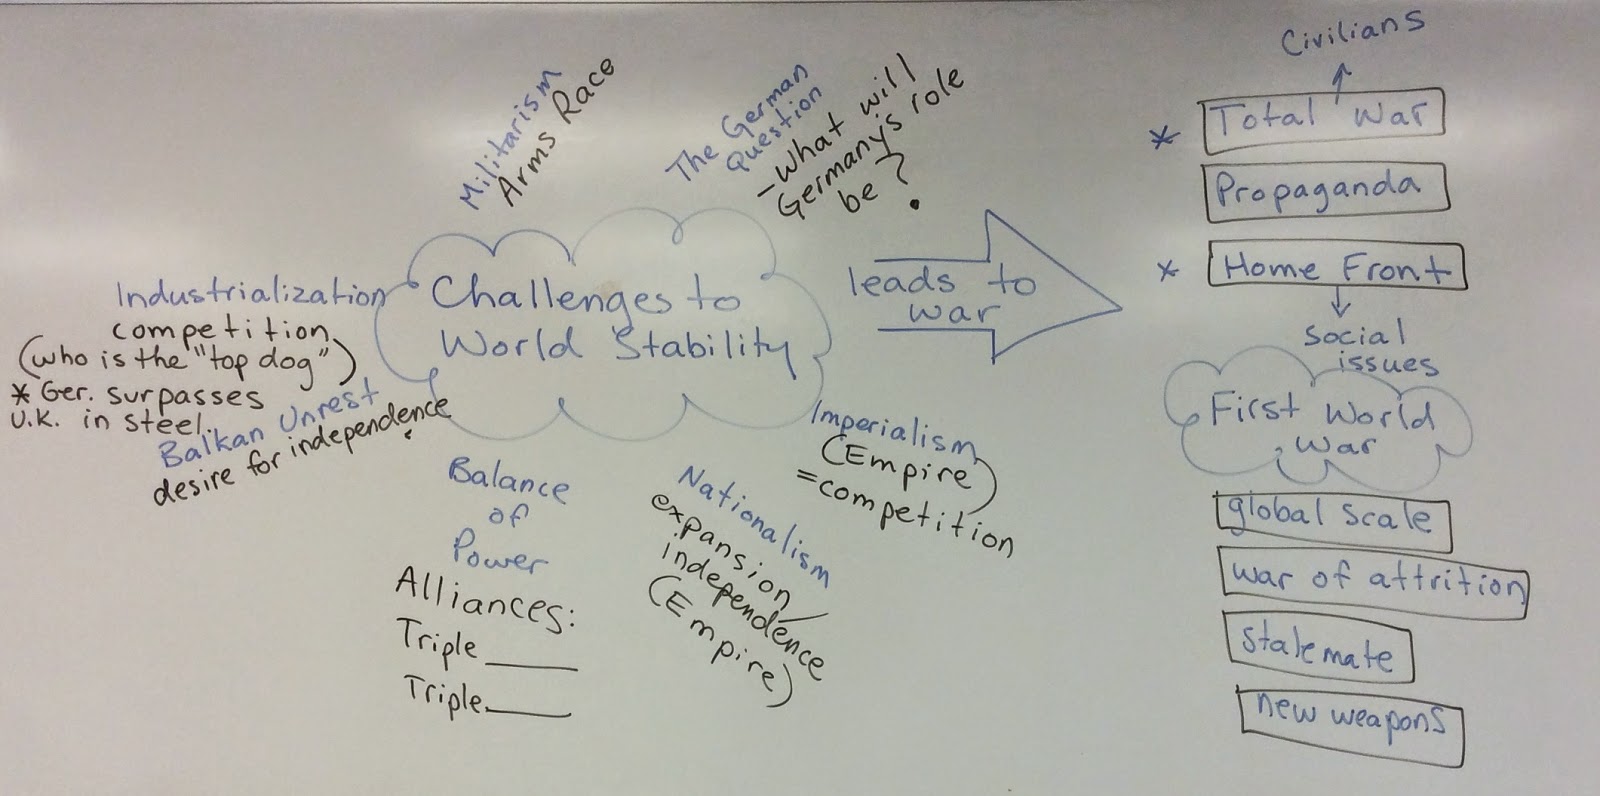 Militarism
Arms Race
The German
Question
-What will
Germany's role
be?
Industrialization
competition
(who is the "top dog")
* Ger. surpasses
U.K. in steel.
Balkan Unrest
desire for independence
Challenges to
World Stability
Balance
of
Power
Alliances:
Triple ____
Triple ____
Nationalism
expansion/
independence
(Empire)
Imperialism
(Empire)
=competition
leads to
war
Civilians
* Total War
Propaganda
* Home Front
social
issues
First World
War
global scale
war of attrition
stalemate
new weapons